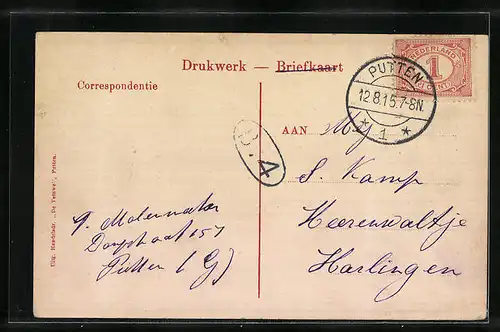 Drukwerk — Briefkaart
Correspondentie
NEDERLAND
1
CENT
PUTTEN
12.8.15.7-8N.
* 1 *
AAN
S. Kamp
Heerenwaltje
Harlingen
B. 4
Dorpstraat 157
Putten (G)
Uitg. Handelsdr. „De Veluwe", Putten.